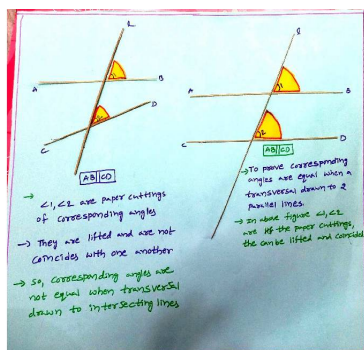 l
A
B
D
C
AB∦CD
→ ∠1,∠2 are paper cuttings
of corresponding angles
→ They are lifted and are not
coincides with one another
→ So, corresponding angles are
not equal when transversal
drawn to intersecting lines
l
A
1
B
2
C
D
AB||CD
→ To prove corresponding
angles are equal when a
transversal drawn to 2
parallel lines.
→ In above figure ∠1,∠2
are the paper cuttings,
the can be lifted and coincided